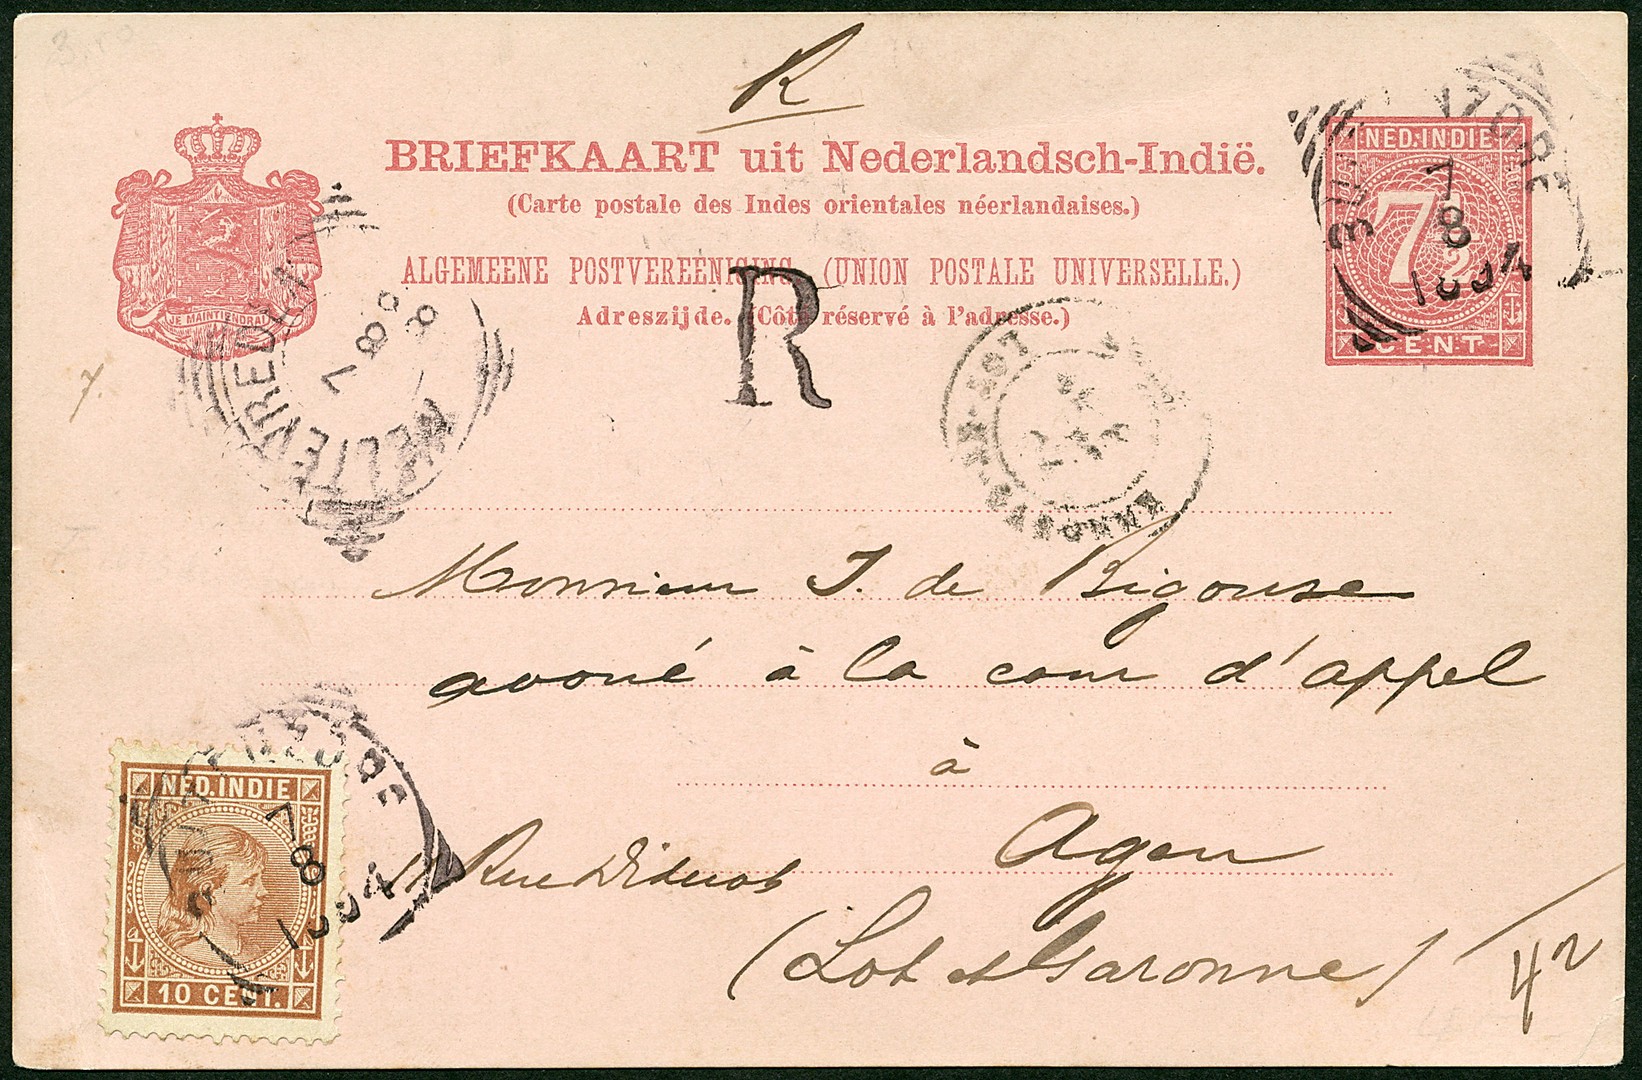 R
BRIEFKAART uit Nederlandsch-Indië.
(Carte postale des Indes orientales néerlandaises.)
ALGEMEENE POSTVEREENIGING. (UNION POSTALE UNIVERSELLE.)
Adreszijde. (Côté réservé à l'adresse.)
JE MAINTIENDRAI
NED. INDIE
7½
CENT
7
8
R
WELTEVREDEN
7.
LOT-ET-GARONNE
Monsieur J. de Bigouse
avoué à la cour d'appel
à
Agen
Rue Diderot
(Lot et Garonne)
42
NED. INDIE
7
8
10 CENT.